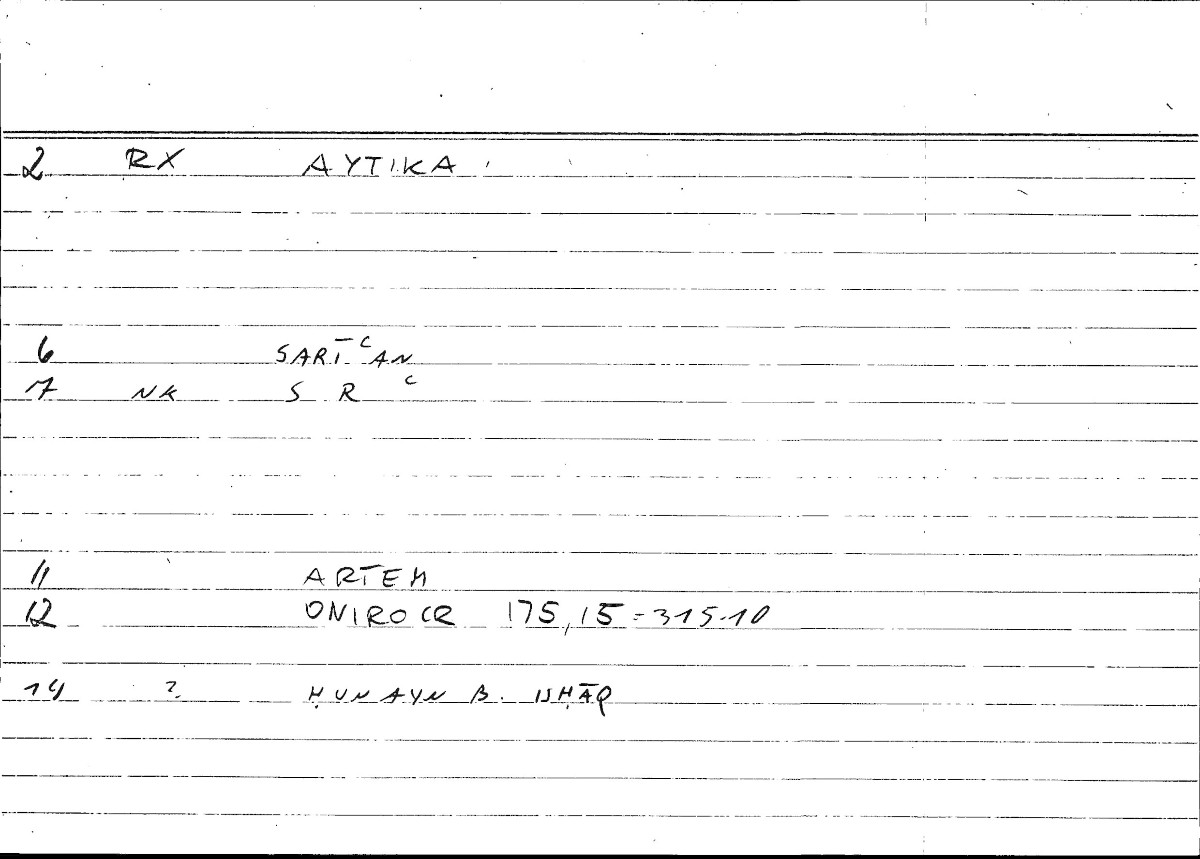 2 RX ΑΥΤΙΚΑ
6 SARĪʿAN
7 NK S R ʿ
11 ARTEM
12 ONIROCR 175,15 = 315.10
14 ? ḤUNAYN B. ISḤĀQ